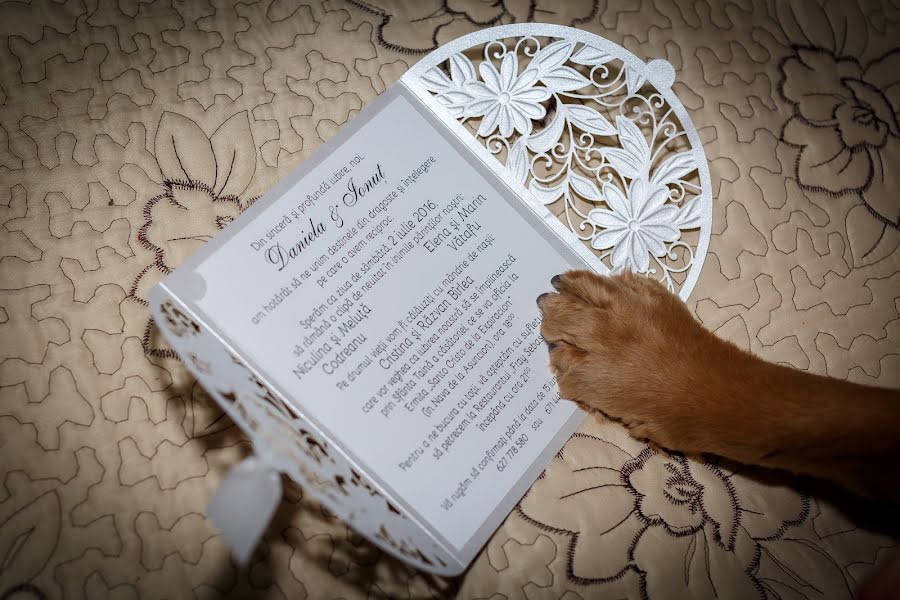 Din sinceră și profundă iubire, noi,
Daniela & Ionuț
am hotărât să ne unim destinele din dragoste și înțelegere
pe care o avem reciproc.
Sperăm ca ziua de sâmbătă, 2 iulie 2016,
să rămână o clipă de neuitat în inimile părinților noștri:
Niculina și Meluță Elena și Marin
Codreanu Vătafu
Pe drumul vieții vom fi călăuziți cu mândrie de nașii:
Cristina și Răzvan Bîrlea
care vor veghea ca iubirea noastră să se împlinească
prin Sfânta Taină a căsătoriei ce se va oficia la
Ermita „Santo Cristo de la Exaltacion"
(în Nava de la Asuncion), ora 18⁰⁰
Pentru a ne bucura cu toții, vă așteptăm cu suflet
să petrecem la Restaurantul „Fray Sebas
începând cu ora 21⁰⁰
Vă rugăm să confirmați până la data de 15
627 778 580 sau 671